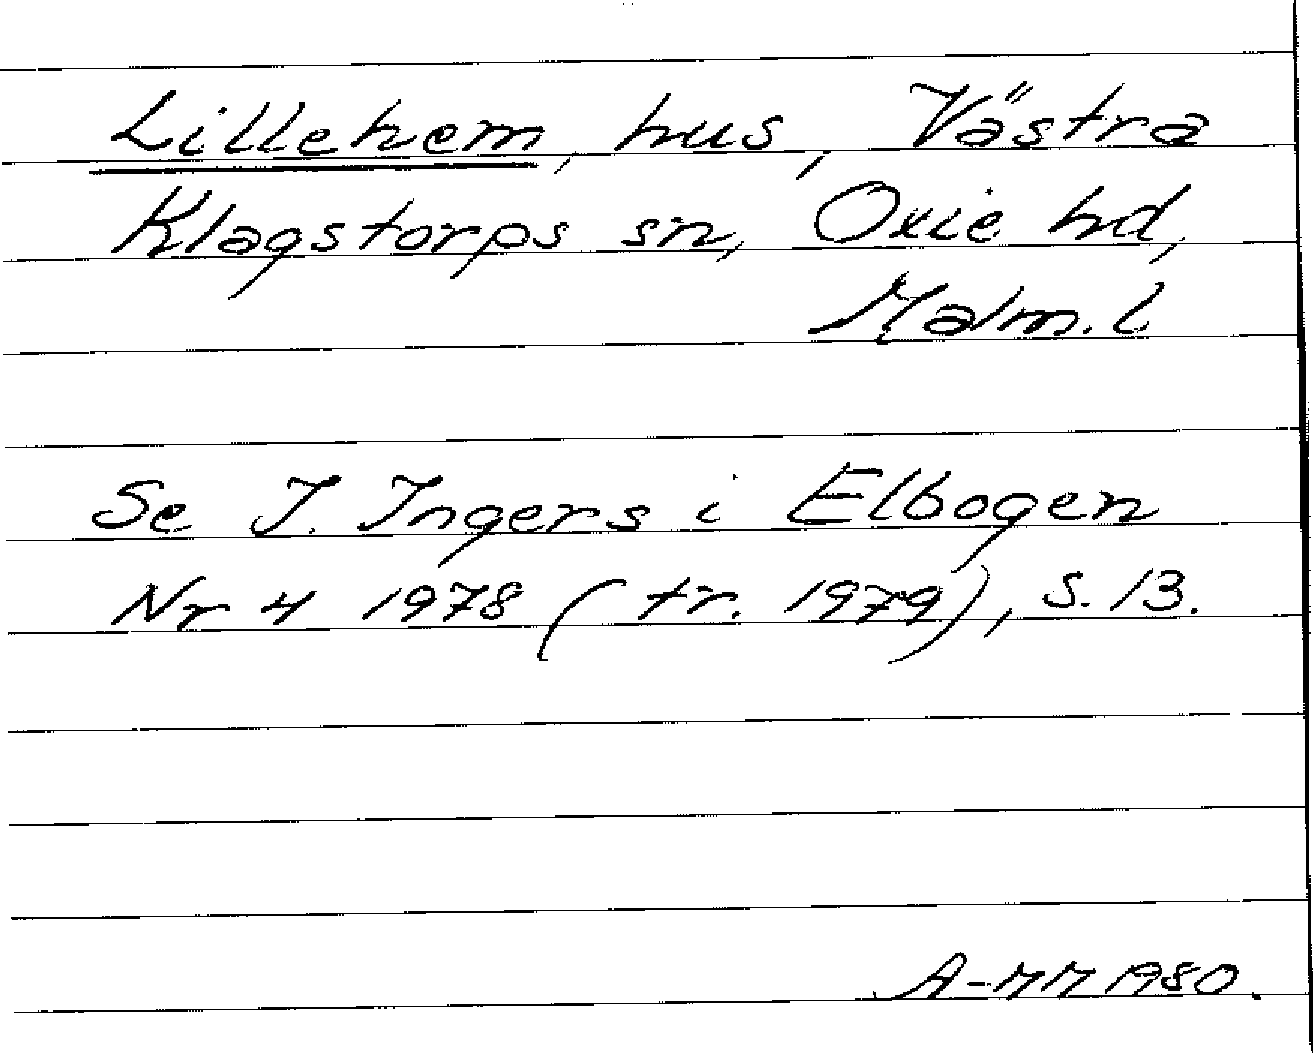 Lillehem, hus, Västra
Klagstorps sn, Oxie hd,
Malm. l
Se I. Ingers i Elbogen
Nr 4 1978 (tr. 1979), s. 13.
A-MM 1980.